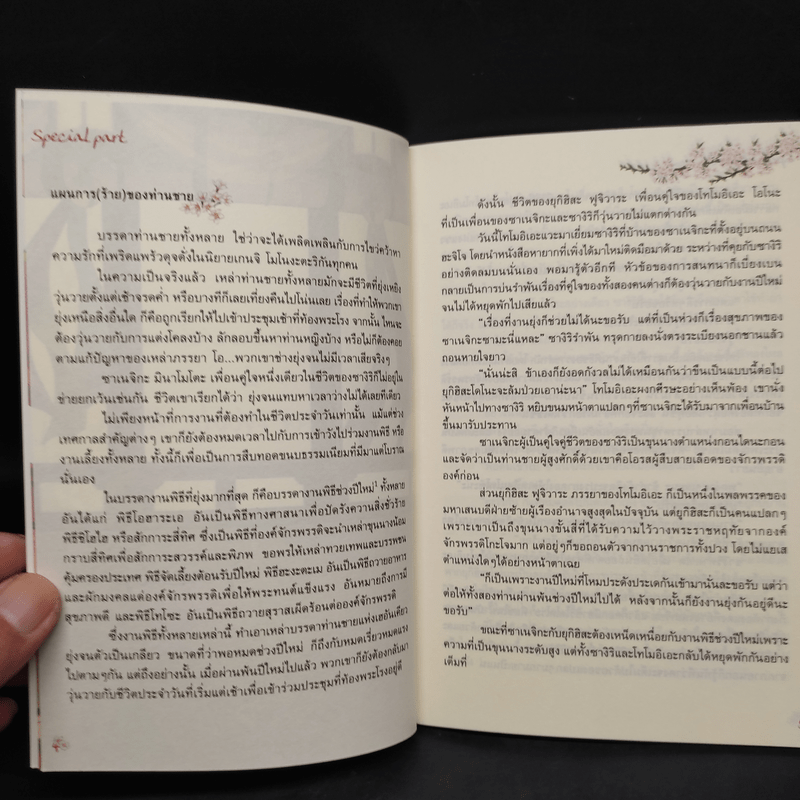 Special part
แผนการ(ร้าย)ของท่านชาย
บรรดาท่านชายทั้งหลาย ใช่ว่าจะได้เพลิดเพลินกับการไขว่คว้าหา
ความรักที่เพริดแพร้วดุจดั่งในนิยายเกนจิ โมโนงะตะริกันทุกคน
ในความเป็นจริงแล้ว เหล่าท่านชายทั้งหลายมักจะมีชีวิตที่ยุ่งเหยิง
วุ่นวายตั้งแต่เช้าจรดค่ำ หรือบางทีก็เลยเที่ยงคืนไปโน่นเลย เรื่องที่ทำให้พวกเขา
ยุ่งเหนือสิ่งอื่นใด ก็คือถูกเรียกให้ไปเข้าประชุมเช้าที่ท้องพระโรง จากนั้น ไหนจะ
ต้องวุ่นวายกับการแต่งโคลงบ้าง ลักลอบขึ้นหาท่านหญิงบ้าง หรือไม่ก็ต้องคอย
ตามแก้ปัญหาของเหล่าภรรยา โอ...พวกเขาช่างยุ่งจนไม่มีเวลาเสียจริงๆ
ซาเนจิกะ มินาโมโตะ เพื่อนคู่ใจหนึ่งเดียวในชีวิตของซางิริก็ไม่อยู่ใน
ข่ายยกเว้นเช่นกัน ชีวิตเขาเรียกได้ว่า ยุ่งจนแทบหาเวลาว่างไม่ได้เลยทีเดียว
ไม่เพียงหน้าที่การงานที่ต้องทำในชีวิตประจำวันเท่านั้น แม้แต่ช่วง
เทศกาลสำคัญต่างๆ เขาก็ยังต้องหมดเวลาไปกับการเข้าวังไปร่วมงานพิธี หรือ
งานเลี้ยงทั้งหลาย ทั้งนี้ก็เพื่อเป็นการสืบทอดขนบธรรมเนียมที่มีมาแต่โบราณ
นั่นเอง
ในบรรดางานพิธีที่ยุ่งมากที่สุด ก็คือบรรดางานพิธีช่วงปีใหม่¹ ทั้งหลาย
อันได้แก่ พิธีโอฮาระเอ อันเป็นพิธีทางศาสนาเพื่อปัดรังความสิ่งชั่วร้าย
พิธีชิโฮไฮ หรือสักการะสี่ทิศ ซึ่งเป็นพิธีที่องค์จักรพรรดิจะนำเหล่าขุนนางน้อม
กราบสี่ทิศเพื่อสักการะสวรรค์และพิภพ ขอพรให้เหล่าทวยเทพและบรรพชน
คุ้มครองประเทศ พิธีจัดเลี้ยงต้อนรับปีใหม่ พิธีฮะงะตะเมะ อันเป็นพิธีถวายอาหาร
และผักมงคลแด่องค์จักรพรรดิเพื่อให้พระทนต์แข็งแรง อันหมายถึงการมี
สุขภาพดี และพิธีโทโซะ อันเป็นพิธีถวายสุราสเผ็ดร้อนต่อองค์จักรพรรดิ
ซึ่งงานพิธีทั้งหลายเหล่านี้ ทำเอาเหล่าบรรดาท่านชายแห่งเฮอันเคียว
ยุ่งจนตัวเป็นเกลียว ขนาดที่ว่าพอหมดช่วงปีใหม่ ก็ถึงกับหมดเรี่ยวหมดแรง
ไปตามๆ กัน แต่ถึงอย่างนั้น เมื่อผ่านพ้นปีใหม่ไปแล้ว พวกเขาก็ยังต้องกลับมา
วุ่นวายกับชีวิตประจำวันที่เริ่มแต่เช้าเพื่อเข้าร่วมประชุมที่ท้องพระโรงอยู่ดี
ดังนั้น ชีวิตของยุกิฮิสะ ฟุจิวาระ เพื่อนคู่ใจของโทโมอิเอะ โอโนะ
ที่เป็นเพื่อนของซาเนจิกะและซางิริก็วุ่นวายไม่แตกต่างกัน
วันนี้โทโมอิเอะแวะมาเยี่ยมซางิริที่บ้านของซาเนจิกะที่ตั้งอยู่บนถนน
ฮะจิโจ โดยนำหนังสือหายากที่เพิ่งได้มาใหม่ติดมือมาด้วย ระหว่างที่คุยกับซางิริ
อย่างติดลมบนนั่นเอง พอมารู้ตัวอีกที หัวข้อของการสนทนาก็เบี่ยงเบน
กลายเป็นการบ่นรำพันเรื่องที่คู่ใจของทั้งสองคนต่างก็ต้องวุ่นวายกับงานปีใหม่
จนไม่ได้หยุดพักไปเสียแล้ว
“เรื่องที่งานยุ่งก็ช่วยไม่ได้นะขอรับ แต่ที่เป็นห่วงก็เรื่องสุขภาพของ
ซาเนจิกะซามะนี่แหละ” ซางิริรำพัน ทรุดกายลงนั่งตรงระเบียงนอกชานแล้ว
ถอนหายใจยาว
“นั่นน่ะสิ ข้าเองก็ยังอดกังวลไม่ได้เหมือนกันว่าขืนเป็นแบบนี้ต่อไป
ยุกิฮิสะโดโนะจะล้มป่วยเอาน่ะนา” โทโมอิเอะผงกศีรษะอย่างเห็นพ้อง เขานั่ง
หันหน้าไปทางซางิริ หยิบขนมหน้าตาแปลกๆ ที่ซาเนจิกะได้รับมาจากเพื่อนบ้าน
ขึ้นมารับประทาน
ซาเนจิกะผู้เป็นคู่ใจคู่ชีวิตของซางิริเป็นขุนนางตำแหน่งกอนไดนะกอน
และจัดว่าเป็นท่านชายผู้สูงศักดิ์ด้วยเขาคือโอรสผู้สืบสายเลือดของจักรพรรดิ
องค์ก่อน
ส่วนยุกิฮิสะ ฟุจิวาระ ภรรยาของโทโมอิเอะ ก็เป็นหนึ่งในพลพรรคของ
มหาเสนบดีฝ่ายซ้ายผู้เรืองอำนาจสูงสุดในปัจจุบัน แต่ยุกิฮิสะก็เป็นคนแปลกๆ
เพราะเขาเป็นถึงขุนนางขั้นสี่ที่ได้รับความไว้วางพระราชหฤทัยจากองค์
จักรพรรดิโกะโจมาก แต่อยู่ๆ ก็ขอถอนตัวจากงานราชการทั้งปวง โดยไม่แยแส
ตำแหน่งใดๆ ได้อย่างหน้าตาเฉย
“ก็เป็นเพราะงานปีใหม่ที่โหมประดังประเดกันเข้ามานั่นละขอรับ แต่ว่า
ต่อให้ทั้งสองท่านผ่านพ้นช่วงปีใหม่ไปได้ หลังจากนั้นก็ยังงานยุ่งกันอยู่ดีนะ
ขอรับ”
ขณะที่ซาเนจิกะกับยุกิฮิสะต้องเหน็ดเหนื่อยกับงานพิธีช่วงปีใหม่เพราะ
ความที่เป็นขุนนางระดับสูง แต่ทั้งซางิริและโทโมอิเอะกลับได้หยุดพักกันอย่าง
เต็มที่